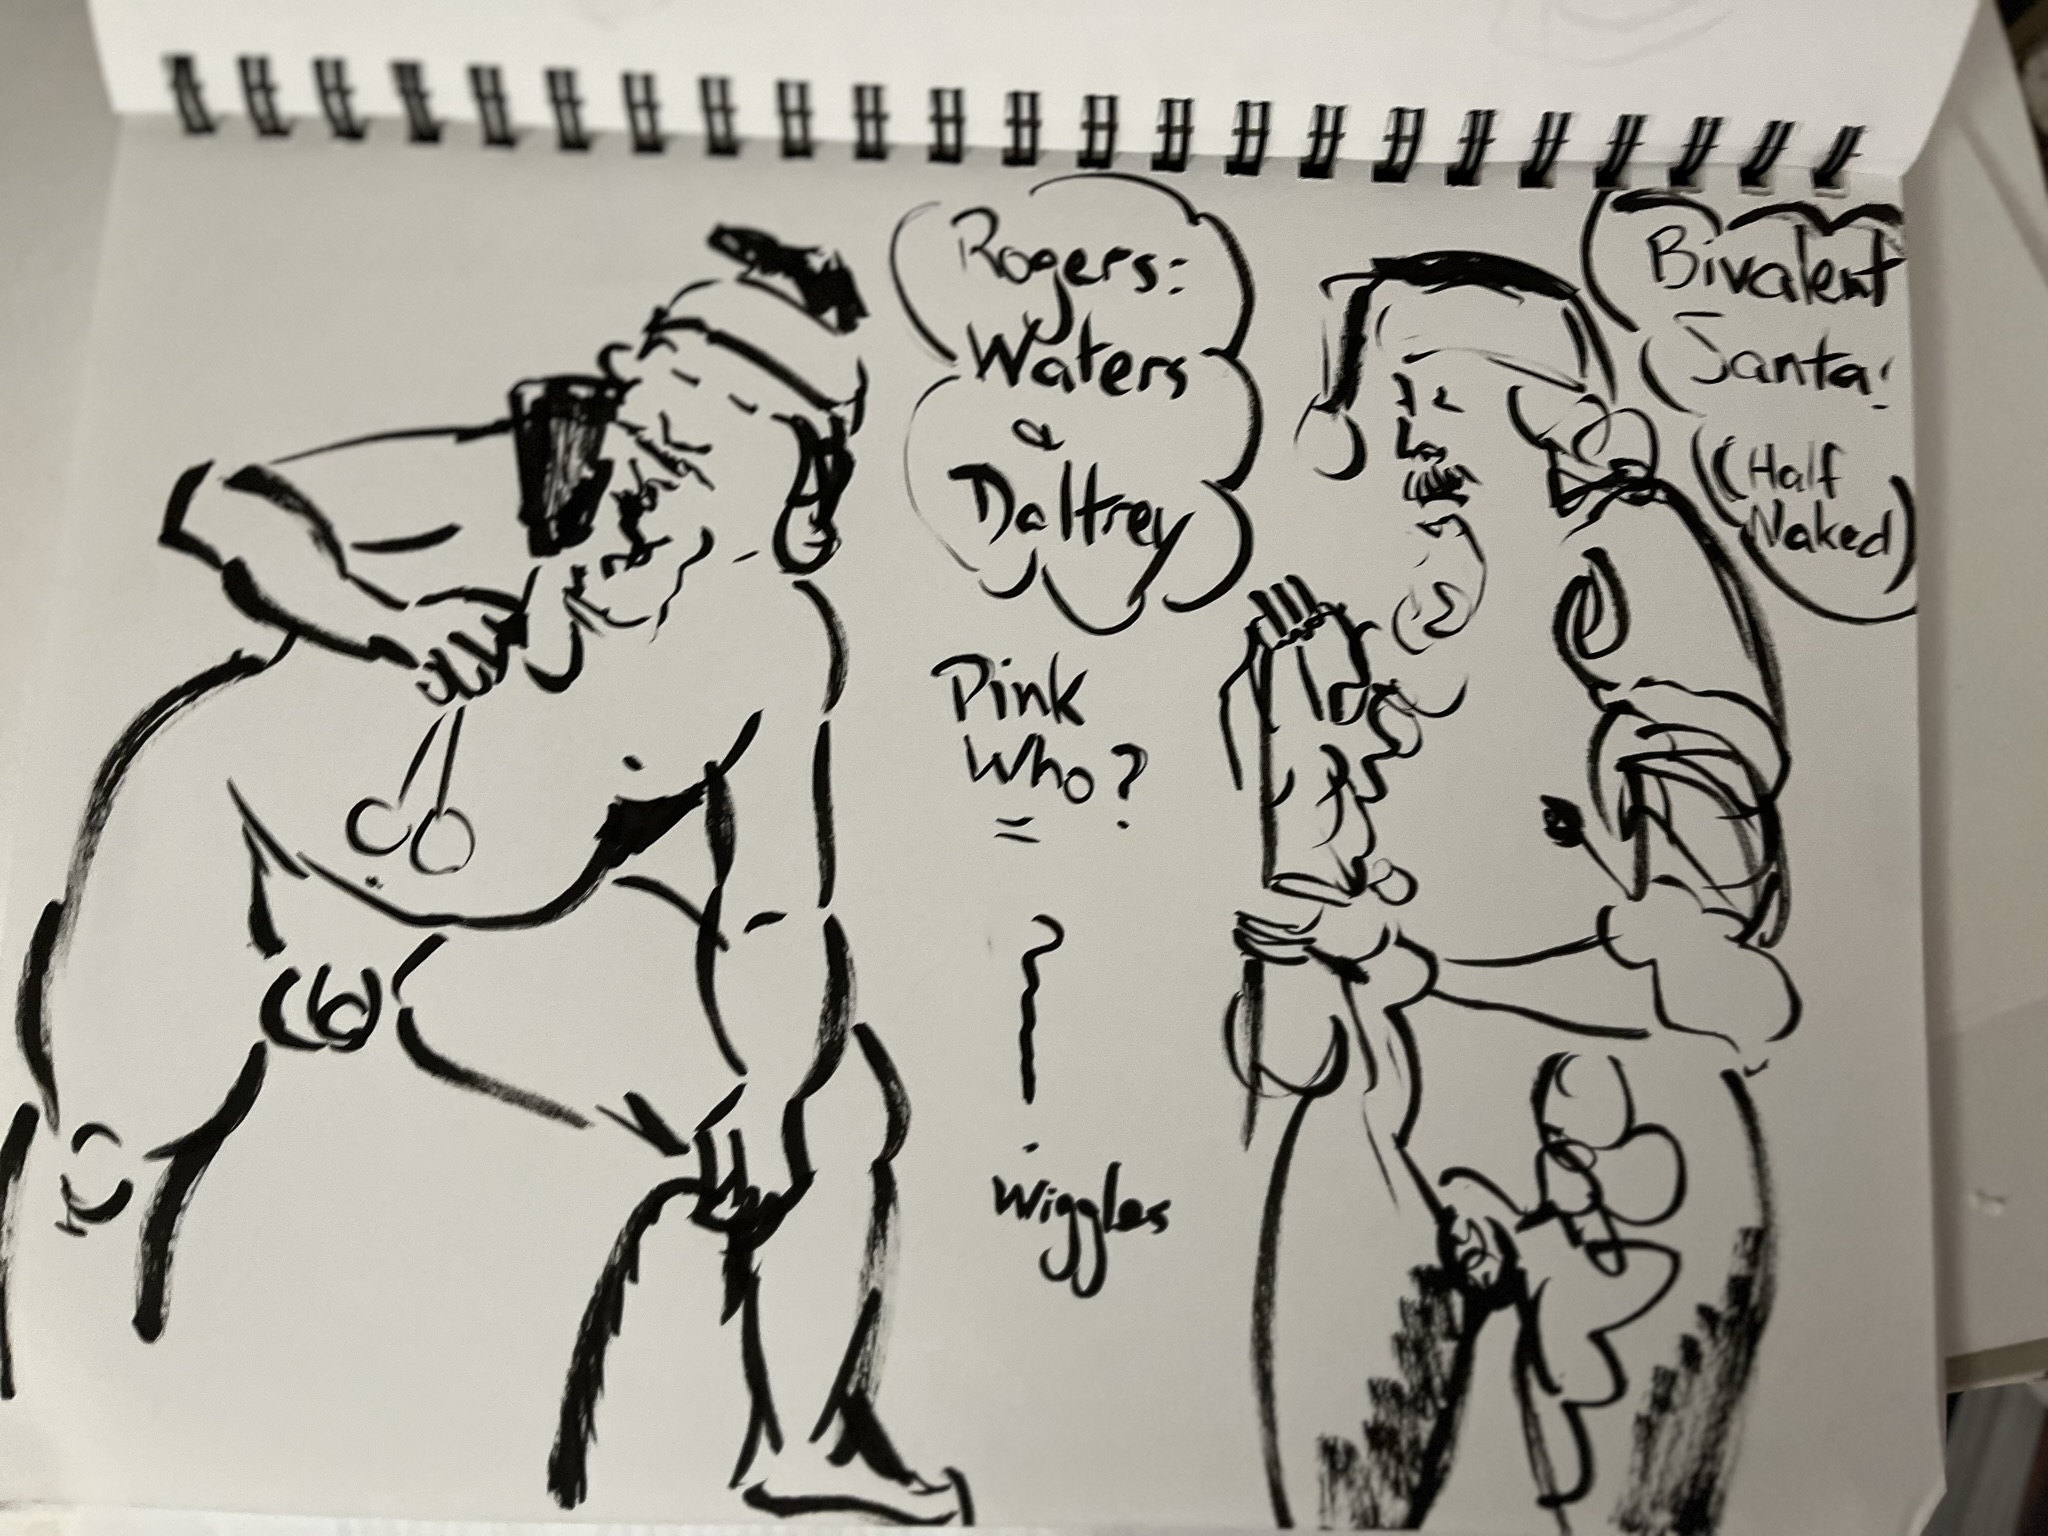 Rogers:
Waters
&
Daltrey
Pink
Who?
=
?
Wiggles
Bivalent
Santa!
(Half
Naked)